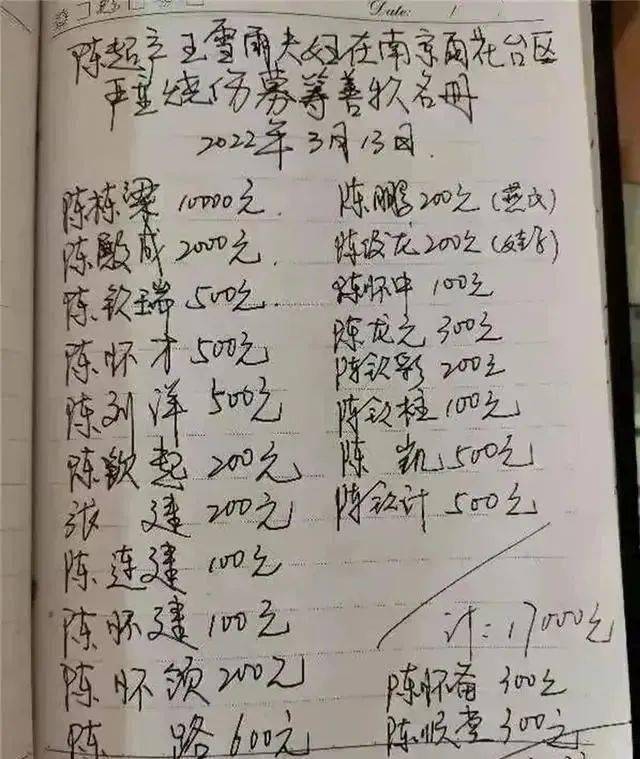 Date:
陈超产王雪雨夫妇在南京雨花台区
严重烧伤募筹善款名册
2022年3月13日.
陈栋梁 10000元.
陈殿成 2000元.
陈钦瑞 500元.
陈怀才 500元
陈刘洋 500元
陈钦 200元
张建 200元
陈连建 100元
陈怀建 100元
陈怀领 200元
陈路 600元
陈鹏 200元
陈龙 200元
陈怀中 100元
陈龙元 300元
陈钦彩 200元
陈钦柱 100元
陈凯 500元
陈钦计 500元
计:17000元
陈怀备 300元
陈顺 300元